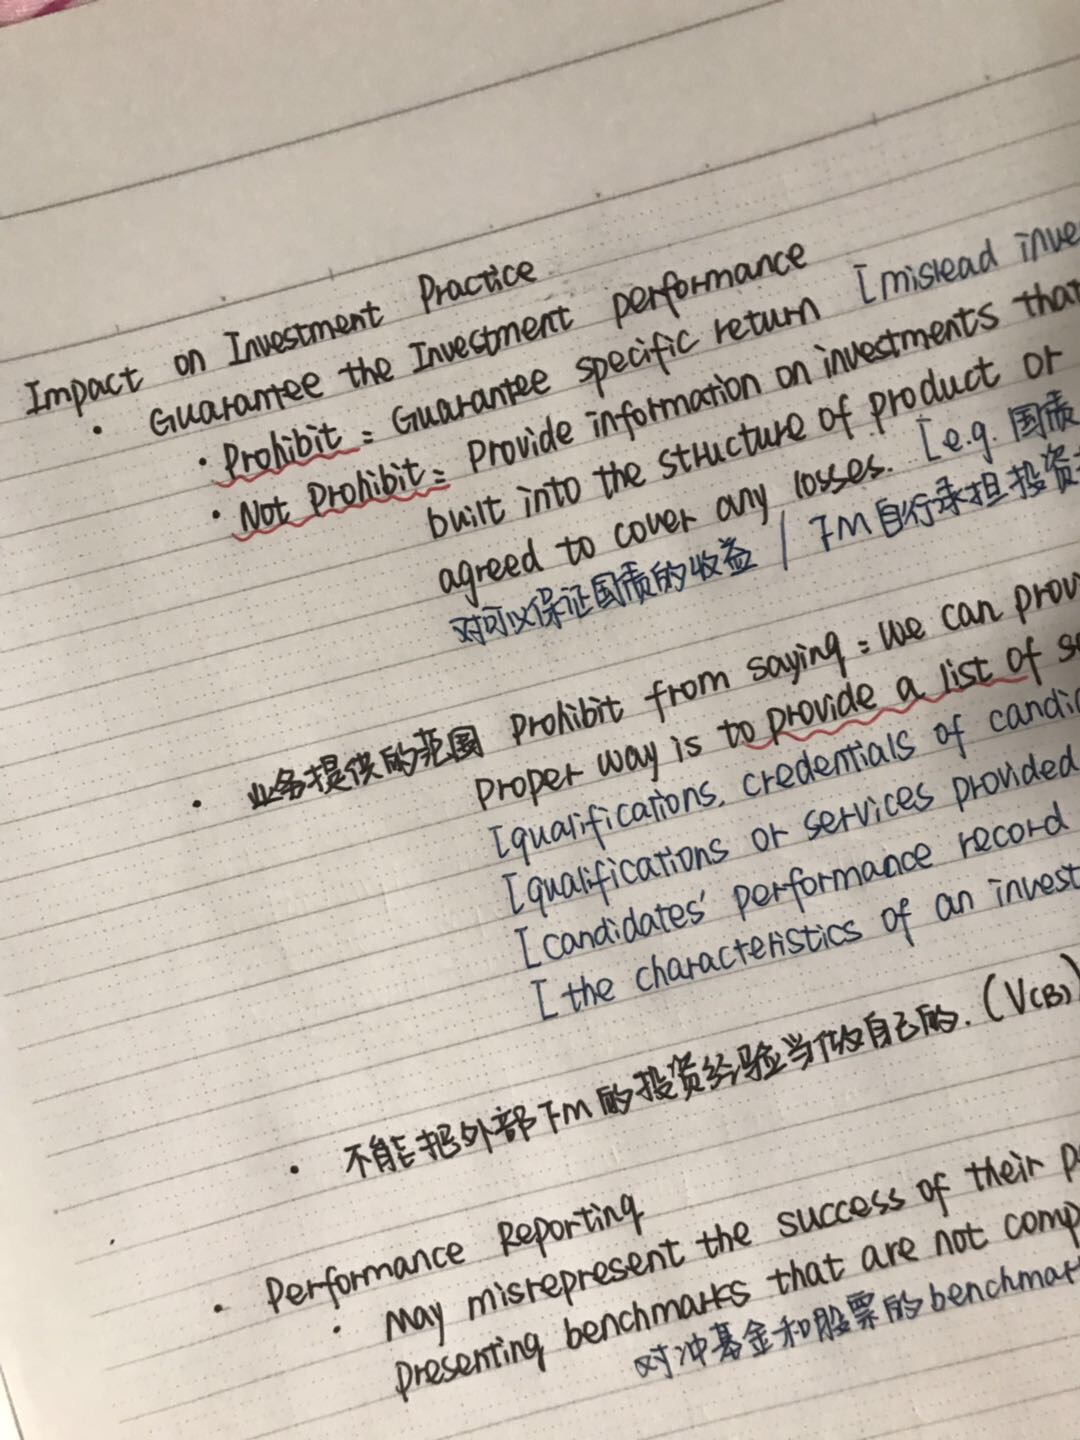 Impact on Investment Practice
· Guarantee the Investment performance
· Prohibit: Guarantee specific return [mislead inve
· Not Prohibit: Provide information on investments that
built into the structure of product or
agreed to cover any losses. [e.g. 国债
对可以保证国债的收益 / FM自行承担投资
· 业务提供的范围 Prohibit from saying: we can prov
Proper way is to provide a list of se
[qualifications, credentials of candid
[qualifications or services provided
[candidates' performance record
[the characteristics of an invest
· 不能把外部FM的投资经验当做自己的. (V(B))
· Performance Reporting
· May misrepresent the success of their p
presenting benchmarks that are not comp
对冲基金和股票的benchmar